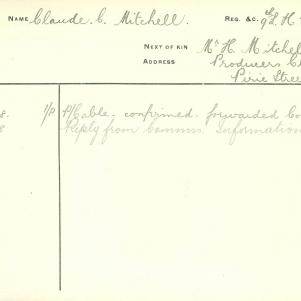 NAME Claude. C. Mitchell. REG. &C. 9th L. H.
NEXT OF KIN Mr H. Mitchel
ADDRESS Producers C
Pirie Stree
8. 1/P P/Cable. confirmed. forwarded Co
8 Reply from Comms. Information